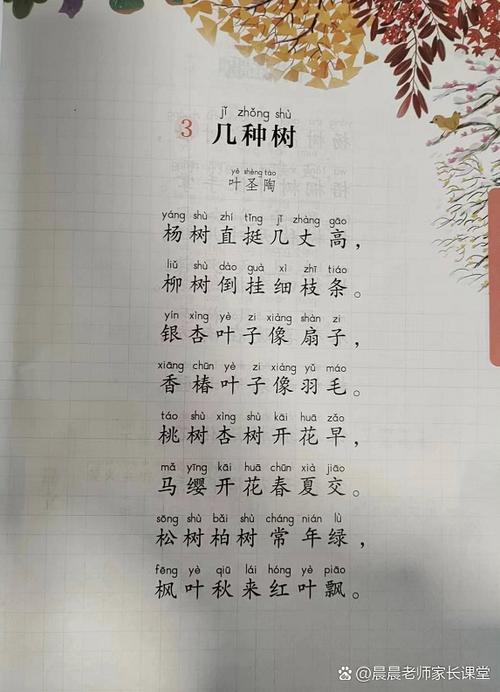 jǐ zhǒng shù
3 几种树
yè shèng táo
叶圣陶
yáng shù zhí tǐng jǐ zhàng gāo
杨树直挺几丈高，
liǔ shù dào guà xì zhī tiáo
柳树倒挂细枝条。
yín xìng yè zi xiàng shàn zi
银杏叶子像扇子，
xiāng chūn yè zi xiàng yǔ máo
香椿叶子像羽毛。
táo shù xìng shù kāi huā zǎo
桃树杏树开花早，
mǎ yīng kāi huā chūn xià jiāo
马缨开花春夏交。
sōng shù bǎi shù cháng nián lǜ
松树柏树常年绿，
fēng yè qiū lái hóng yè piāo
枫叶秋来红叶飘。
晨晨老师家长课堂